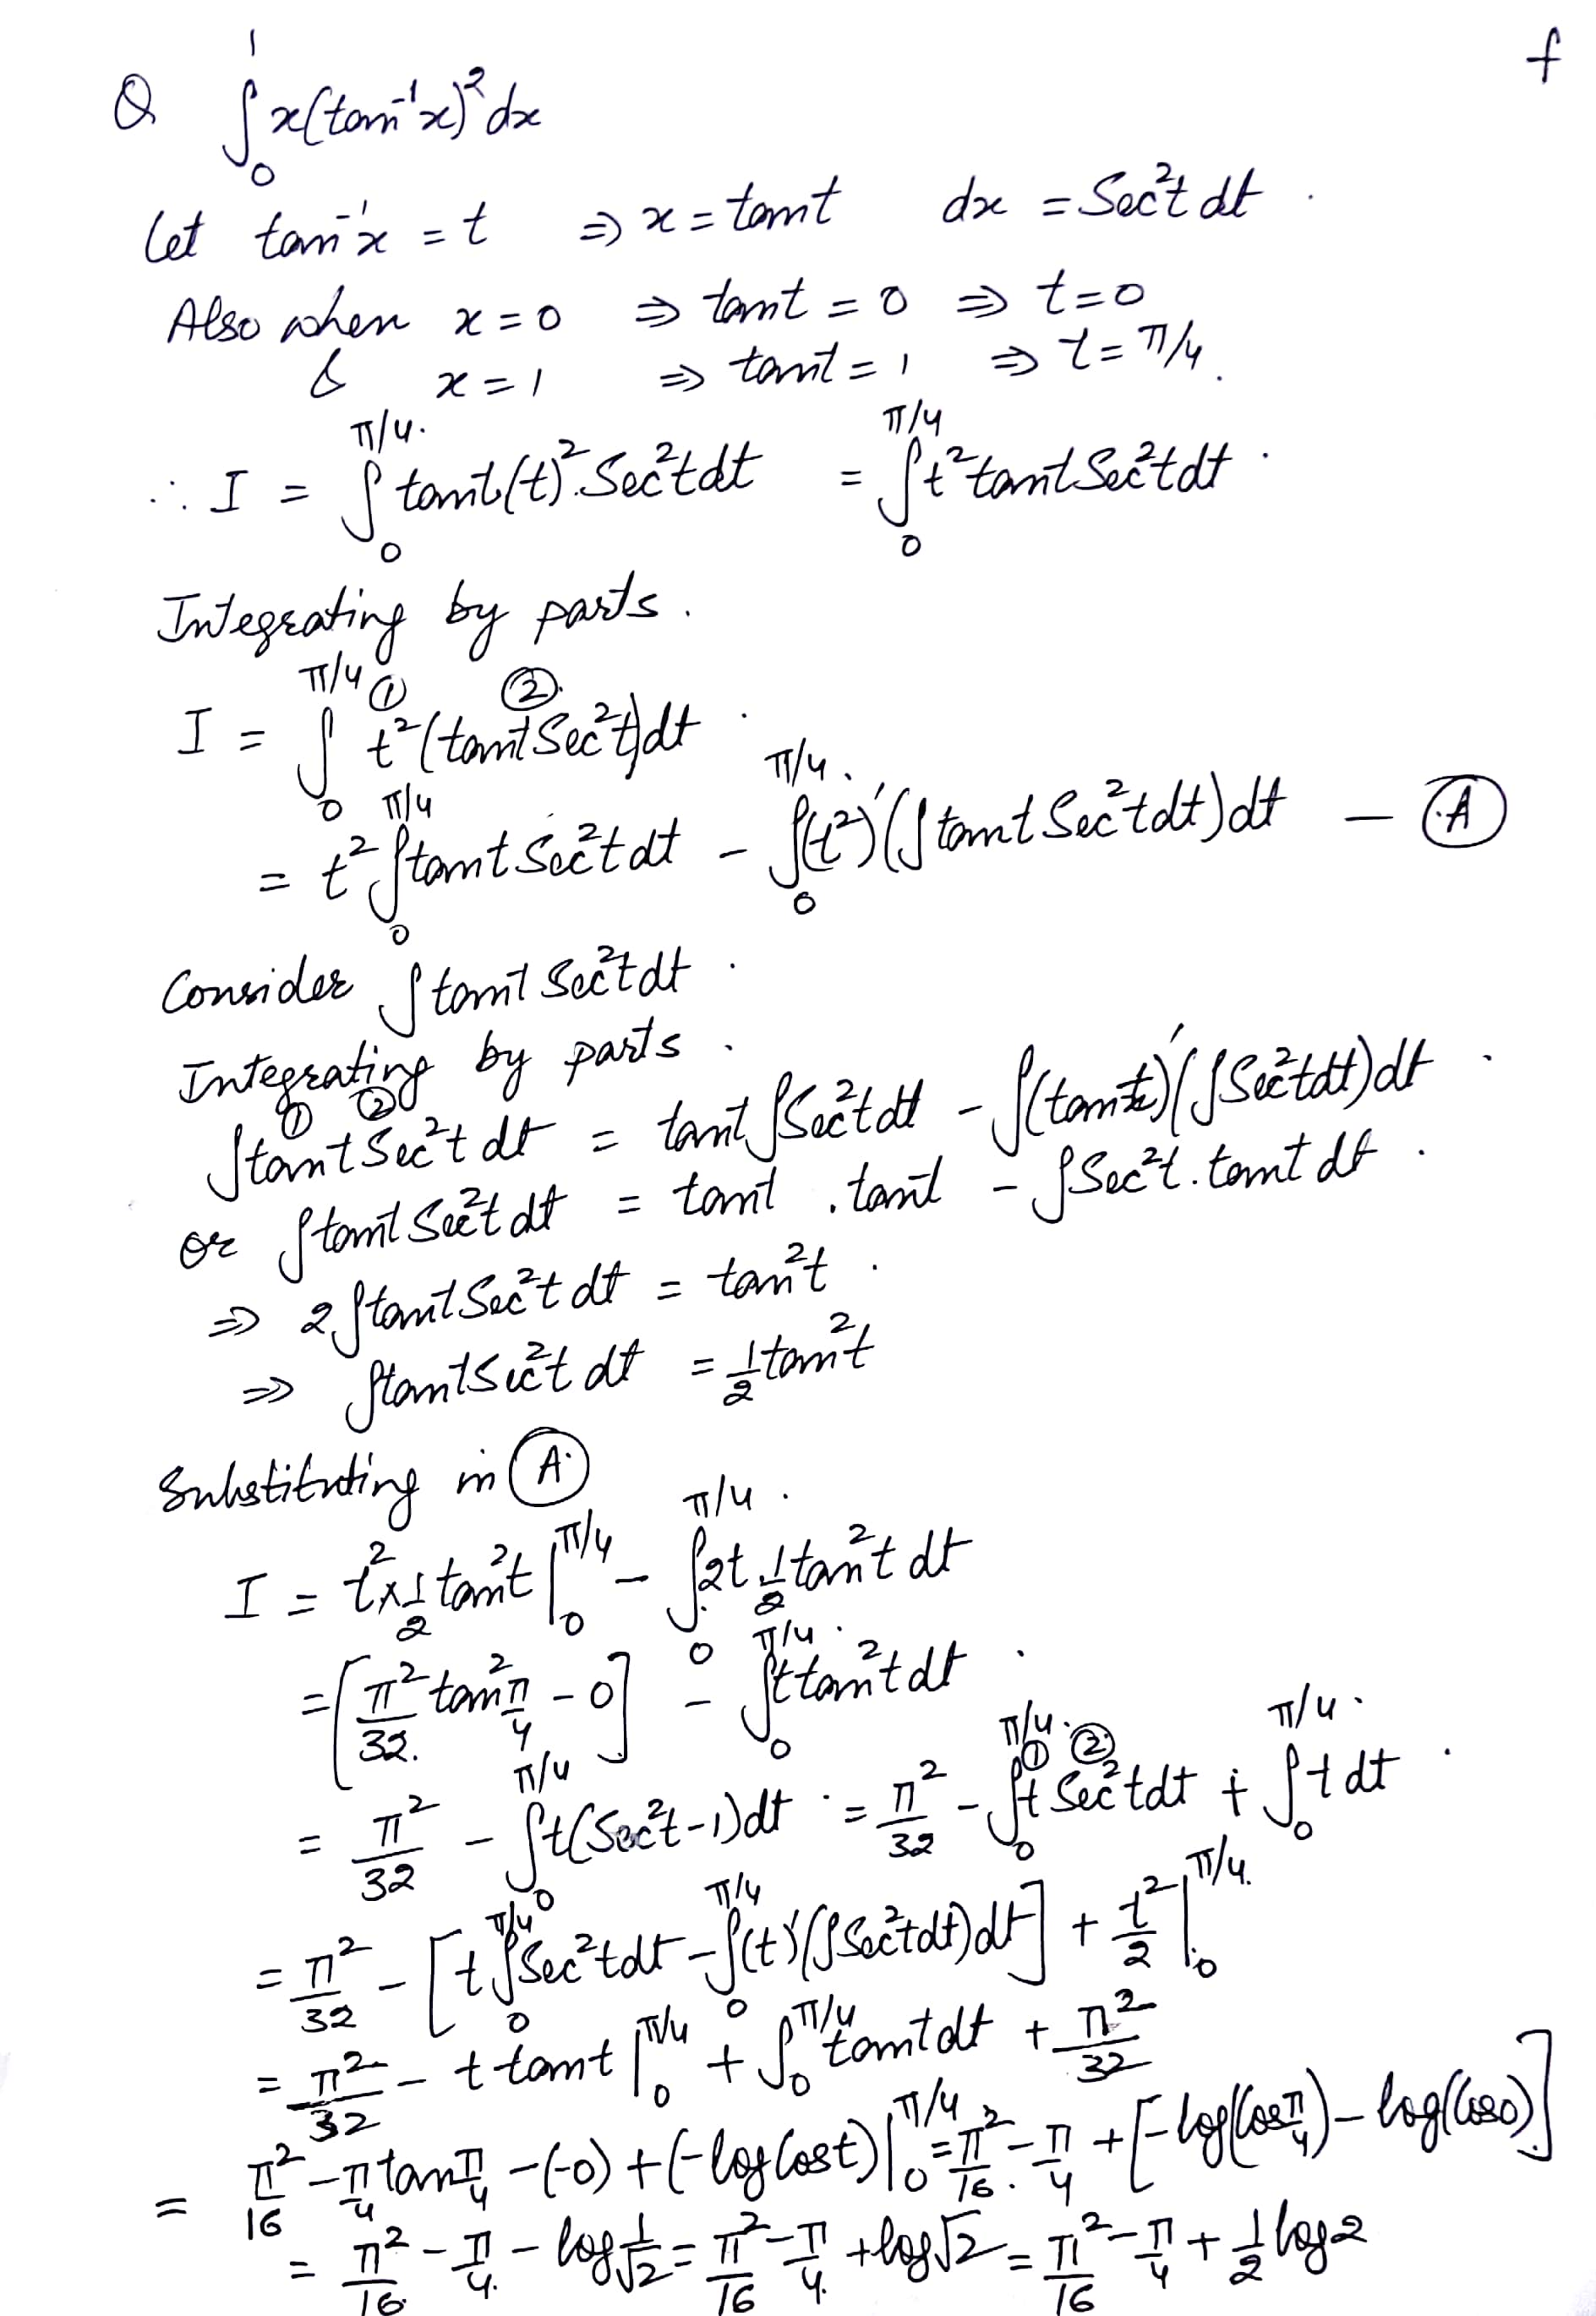 f
Q ∫₀¹ x(tan⁻¹x)² dx
Let tan⁻¹x = t ⇒ x = tant dx = Sec²t dt .
Also when x = 0 ⇒ tant = 0 ⇒ t = 0
& x = 1 ⇒ tant = 1 ⇒ t = π/4.
∴ I = ∫₀^{π/4} tant(t)².Sec²tdt = ∫₀^{π/4} t²tantSec²tdt .
Integrating by parts .
I = ∫₀^{π/4} t²^① (tantSec²t)^② dt .
= t² ∫₀^{π/4} tantSec²tdt - ∫₀^{π/4} (t²)'(∫tantSec²tdt)dt — Ⓐ
Consider ∫tantSec²tdt .
Integrating by parts .
∫tant^① Sec²t^② dt = tant∫Sec²tdt - ∫(tant)'(∫Sec²tdt)dt .
or ∫tantSec²tdt = tant . tant - ∫Sec²t.tantdt .
⇒ 2∫tantSec²tdt = tan²t .
⇒ ∫tantSec²tdt = 1/2 tan²t
Substituting in Ⓐ
I = t² × 1/2 tan²t |₀^{π/4} - ∫₀^{π/4} 2t 1/2 tan²t dt
= [π²/32 tan² π/4 - 0] - ∫₀^{π/4} t tan²tdt .
= π²/32 - ∫₀^{π/4} t(Sec²t-1)dt = π²/32 - ∫₀^{π/4} t^① Sec²t^② dt + ∫₀^{π/4} t dt .
= π²/32 - [t ∫₀^{π/4} Sec²tdt - ∫₀^{π/4} (t)'(∫Sec²tdt)dt] + t²/2 |₀^{π/4}
= π²/32 - t tant |₀^{π/4} + ∫₀^{π/4} tantdt + π²/32
= π²/16 - π/4 tan π/4 - (-0) + (-log Cost) |₀^{π/4} = π²/16 - π/4 + [-log(Cos π/4) - log(Cos0)]
= π²/16 - π/4 - log 1/√2 = π²/16 - π/4 + log√2 = π²/16 - π/4 + 1/2 log2